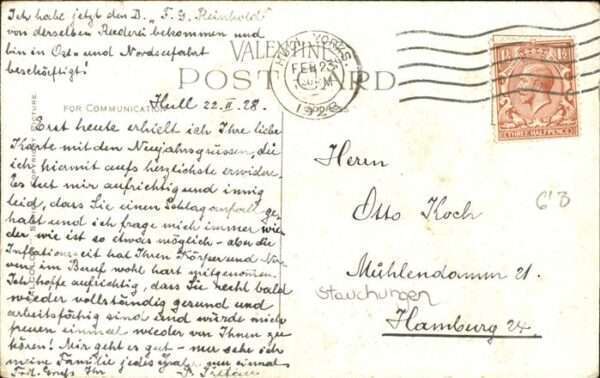 Ich habe jetzt den D. „F. G. Reinhold"
von derselben Reederei bekommen und
bin in Ost- und Nordseefahrt
beschäftigt!
VALENTINE'S
POST CARD
FOR COMMUNICATION
HULL YORKS.
FEB 23
1928
THREE HALFPENCE
Hull 22.II.28.
Erst heute erhielt ich Ihre liebe
Karte mit den Neujahrsgrüssen, die
ich hiermit aufs herzlichste erwidere.
Es tut mir aufrichtig und innig
leid, dass Sie einen Schlaganfall ge-
habt und ich frage mich immer wie-
der wie ist so etwas möglich - aber die
Inflationszeit hat Ihren Körper und Ner-
ven im Beruf wohl hart mitgenommen.
Ich hoffe aufrichtig, dass Sie recht bald
wieder vollständig gesund und
arbeitsfähig sind und würde mich
freuen einmal wieder von Ihnen zu
hören! Mir geht es gut - nur sehe ich
meine Familie jedes Jahr nur einmal
Frdl. Gruss Ihr
Herrn
Otto Koch
Mühlendamm 21.
Stauchungen
Hamburg 24.